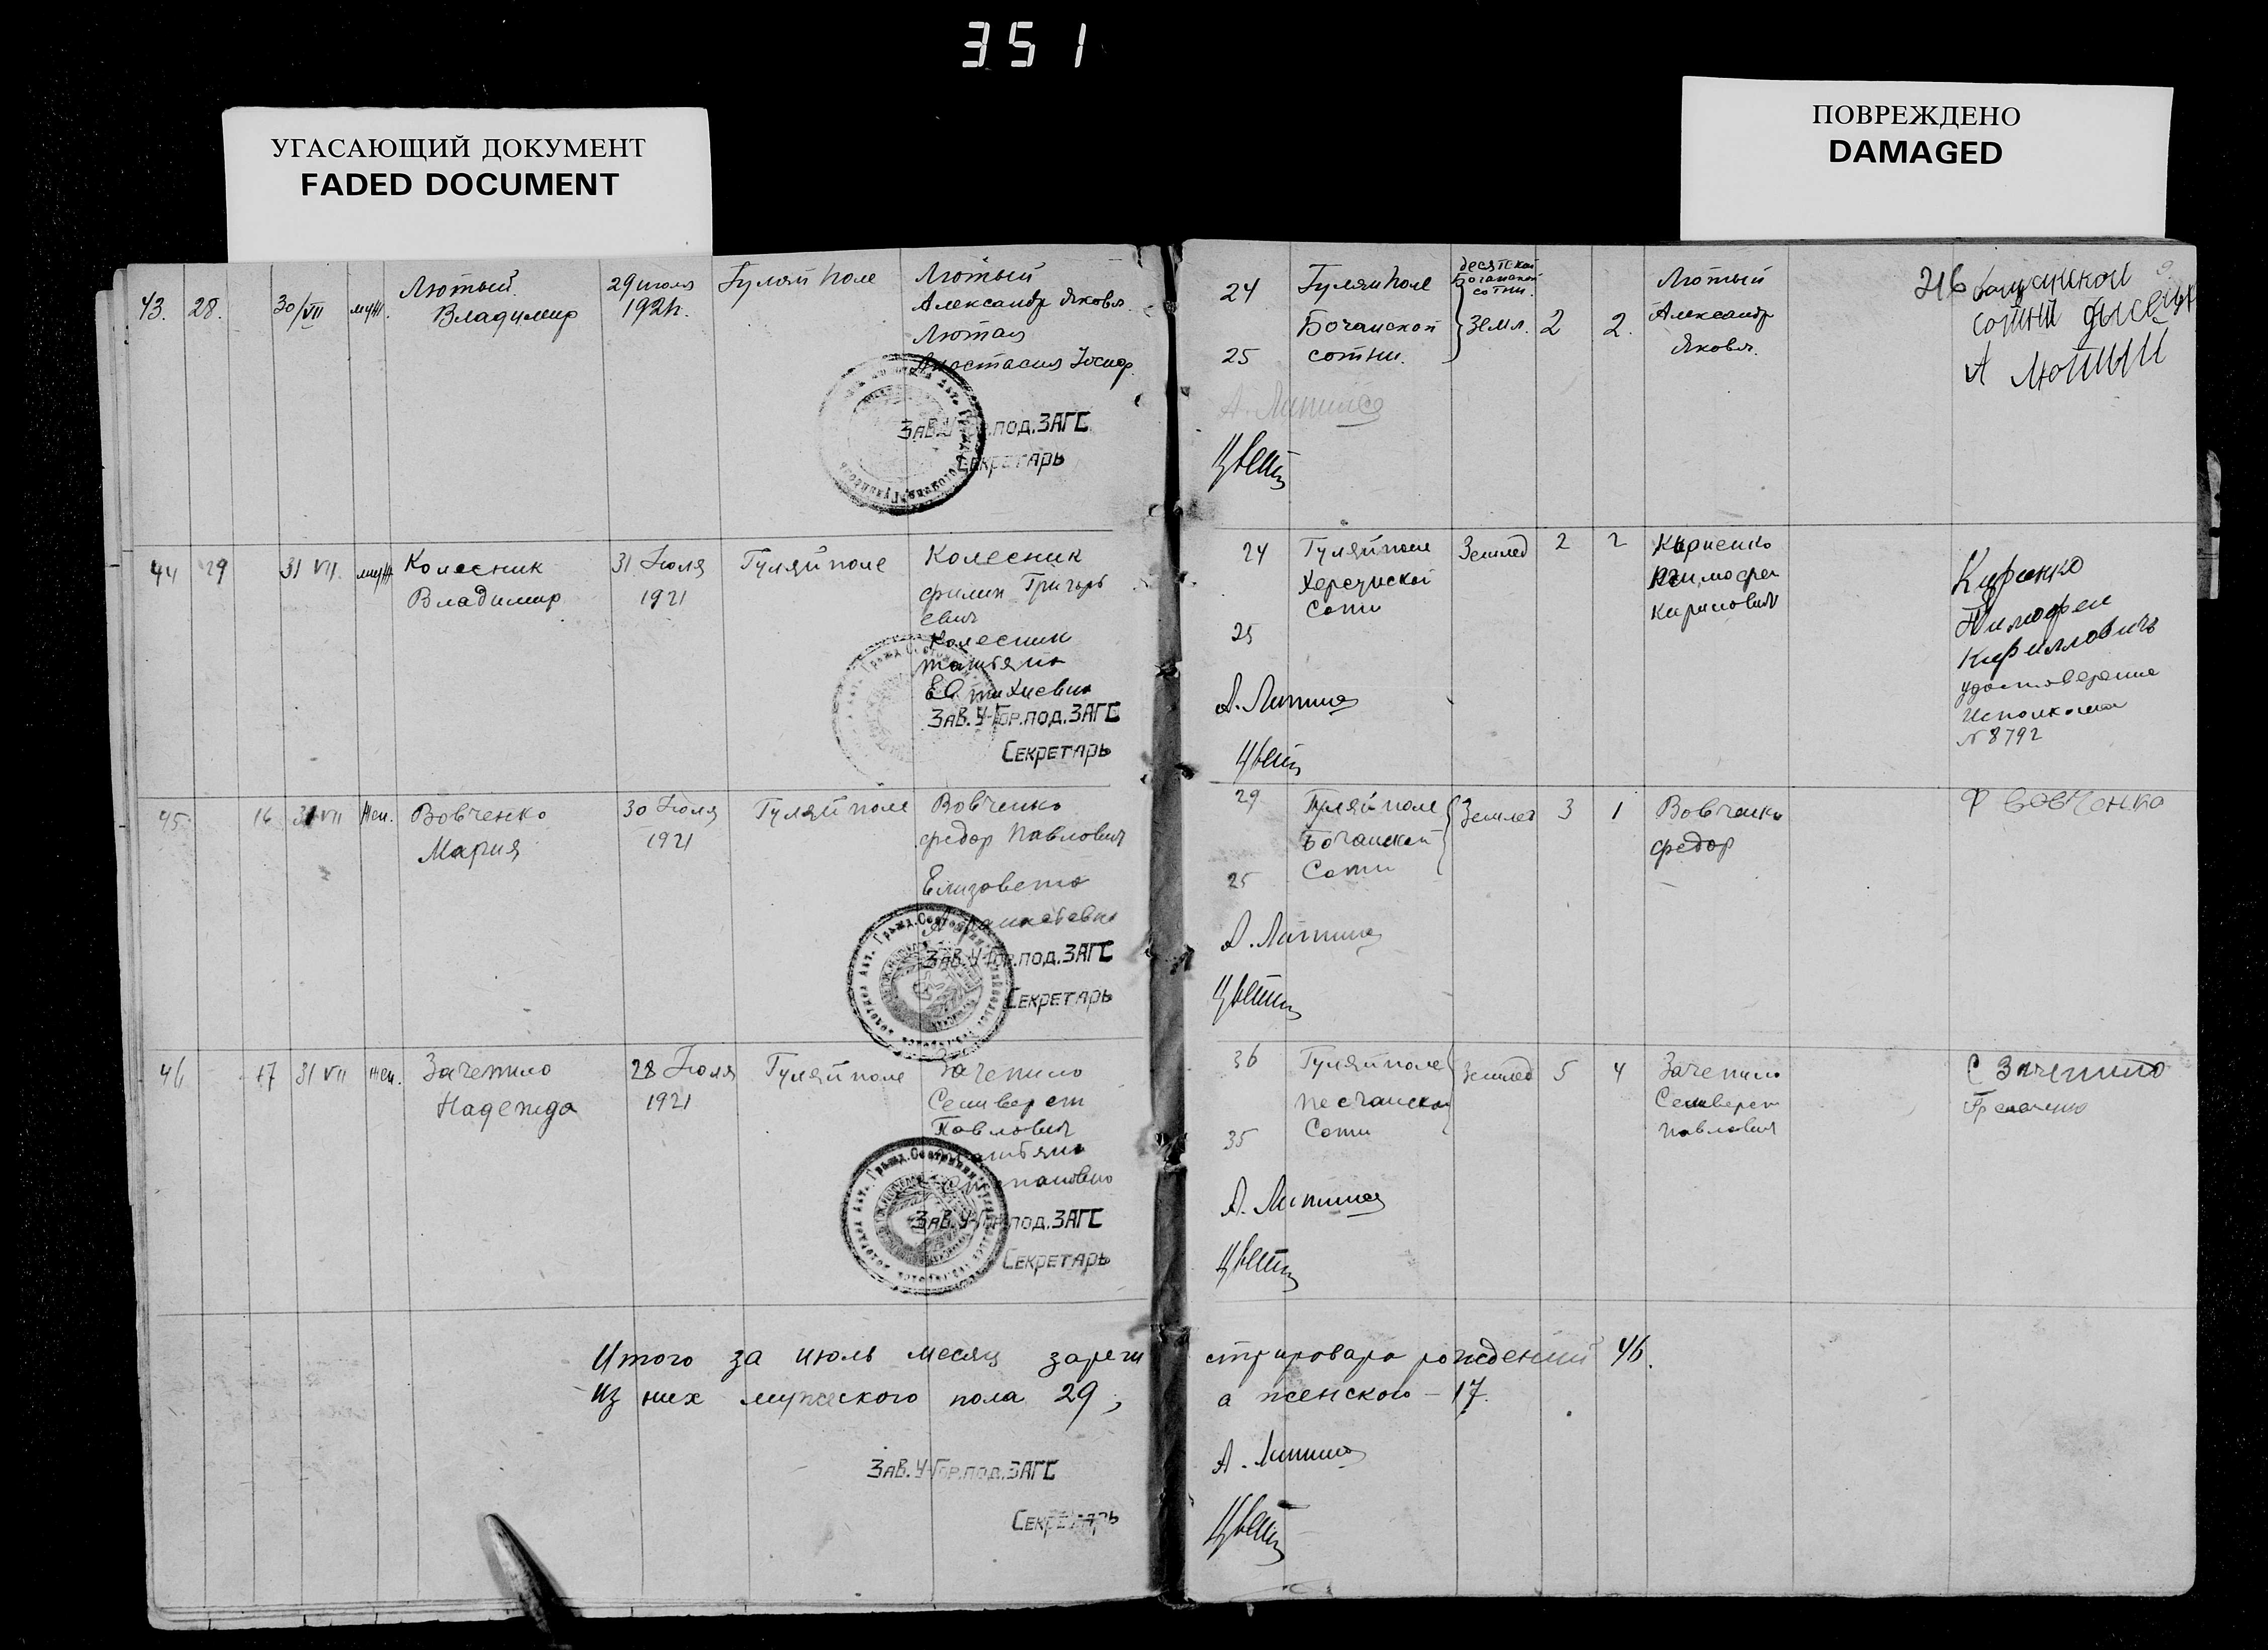 351
УГАСАЮЩИЙ ДОКУМЕНТ
FADED DOCUMENT
ПОВРЕЖДЕНО
DAMAGED
43. 28. 30/VII муж. Лютый Владимир
29 июля 1921г.
Гуляйполе
Лютый
Александр Яковл.
Лютая
Анастасия Иосиф.
Зав. У-Гор.под.ЗАГС
Секретарь
24
25
Гуляйполе
Бочанской
сотни.
десятской
сотни.
Земл. 2 2.
Лютый
Александр
Яковл.
216
сотни
А Лютый
44 29 31 VII муж Колесник
Владимир
31 Июля
1921
Гуляйполе
Колесник
Филип Григорь
евич
Колесник
Татьяна
Евтихиевна
Зав. У-Гор.под.ЗАГС
Секретарь
24
25
Гуляйполе
Херсунской
Сотни
Землед 2 2
Кириенко
Тимофей
Кирилович
Кириенко
Тимофей
Кирилловичъ
удостоверение
Исполкома
N 8792
45 16 31 VII Жен. Вовченко
Мария
30 Июля
1921
Гуляйполе
Вовченко
Федор Павлович
Елизовета
Зав. У-Гор.под.ЗАГС
Секретарь
29
25
Гуляйполе
Бочанской
Сотни
Землед 3 1
Вовченко
Федор
Ф Вовченко
46 17 31 VII жен. Зачепило
Надежда
28 Июля
1921
Гуляйполе
Зачепило
Селиверст
Павлович
Татьяна
Степановна
Зав. У-Гор.под.ЗАГС
Секретарь
36
35
Гуляйполе
Песчанской
Сотни
Землед 5 4
Зачепило
Селиверст
Павлович
С Зачепило
Итого за июль месяц зареги стрировано рождений 46.
Из них мужеского пола 29, а женского – 17.
Зав. У-Гор.под.ЗАГС
Секретарь